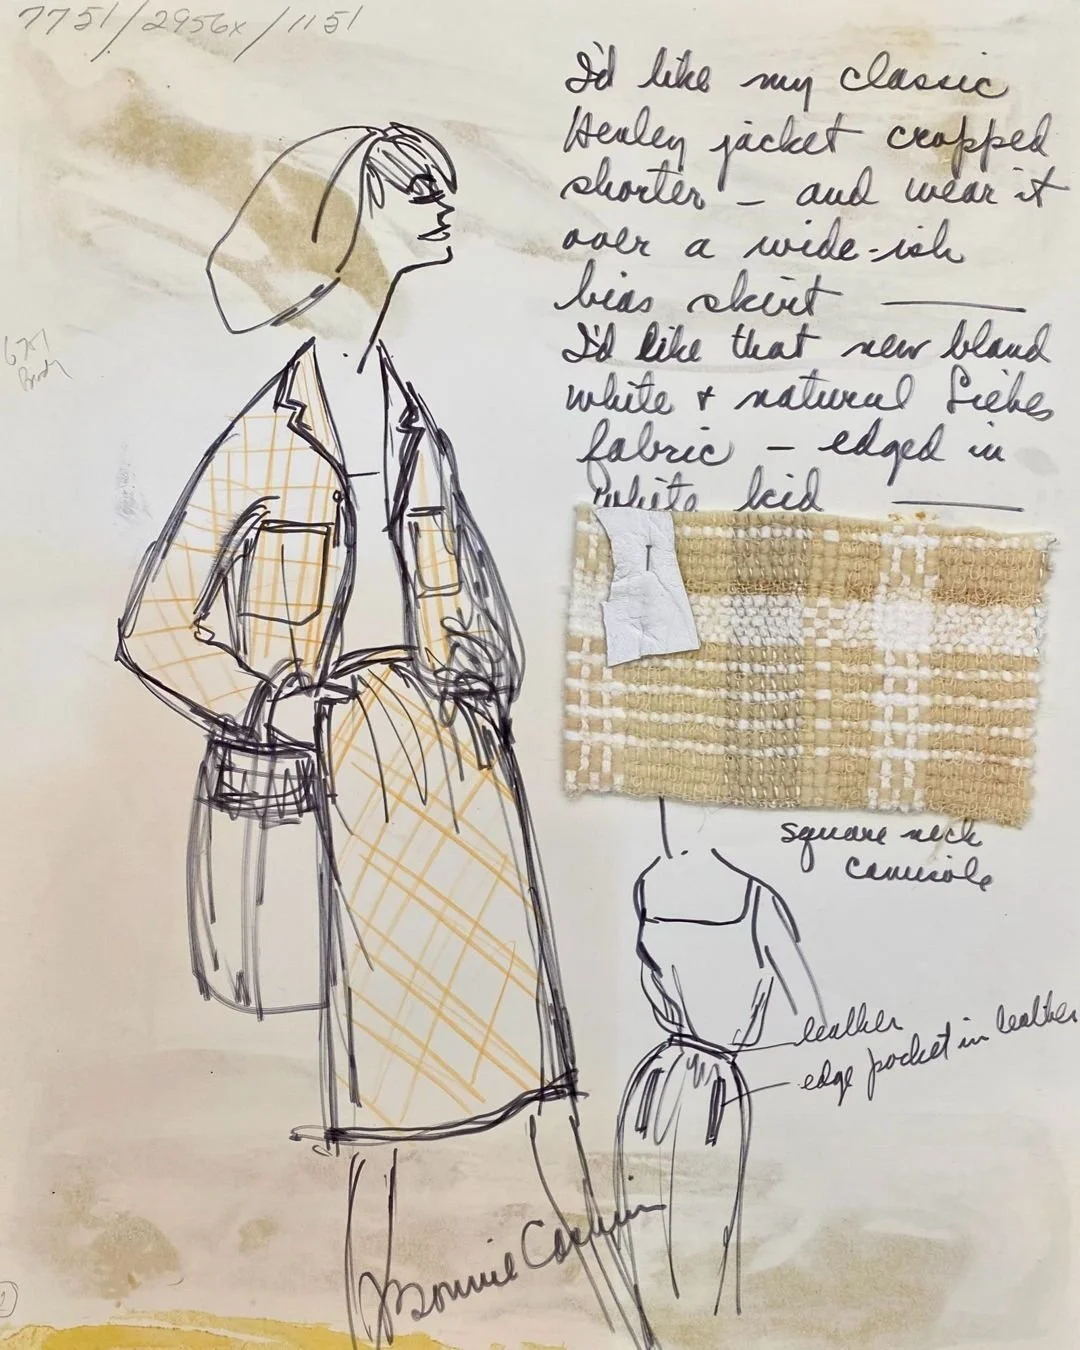 7751/2956x/1151
I'd like my classic
Healey jacket cropped
shorter – and wear it
over a wide-ish
bias skirt
I'd like that new bland
white + natural Liebes
fabric – edged in
white kid
square neck
camisole
leather
edge pocket in leather
Bonnie Cashin